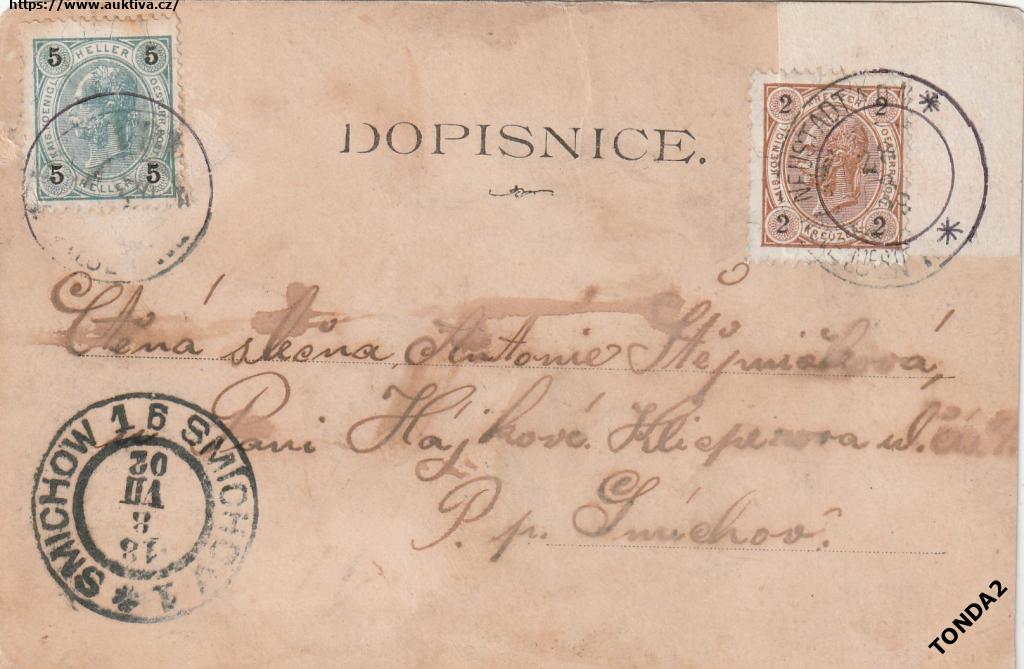 https://www.auktiva.cz/
5 HELLER 5
5 HELLER 5
2 KREUZER 2
2 KREUZER 2
NEUSTADT
DOPISNICE.
Ctěná slečna Antonie Štěpničková,
Paní Hájkové. Klicperova ul.
P. p. Smíchov.
SMICHOW 1 6 SMICHOV 1
02
VII
8
18
TONDA2